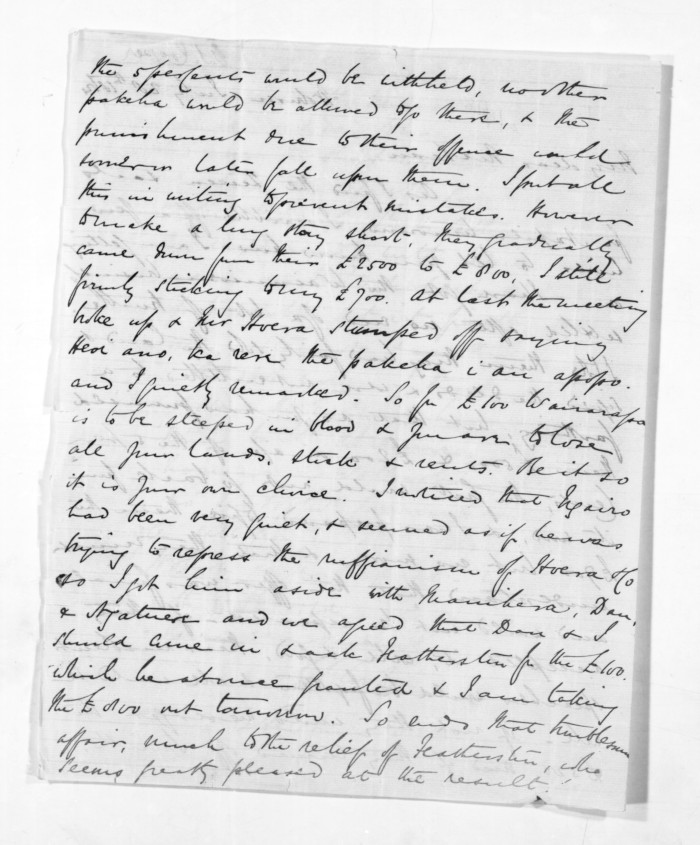 the 5 per Cents would be withheld, no other
pakeha would be allowed to go there, & the
punishment due to their offence would
sooner or later fall upon them. I put all
this in writing to prevent mistakes. However
to make a long story short, they gradually
came down from their £2500 to £800, I still
firmly sticking to my £700. At last the meeting
broke up & Mr Hoera stumped off saying
Heoi ano, the pakeha i au
and I quietly remarked. So for £100 Wairarapa
is to be steeped in blood & you are to lose
all your lands, stock & rents. Be it so
it is your own choice. I noticed that Ngairo
had been very quiet, & seemed as if he was
trying to repress the ruffianism of Hoera & Co
so I got him aside with Manihera, Dan,
& and we agreed that Dan & I
should come in & ask Featherston for the £100.
which he at once granted & I am taking
the £800 out tomorrow. So ends that troublesome
affair, much to the relief of Featherston, who
seems greatly pleased at the result!